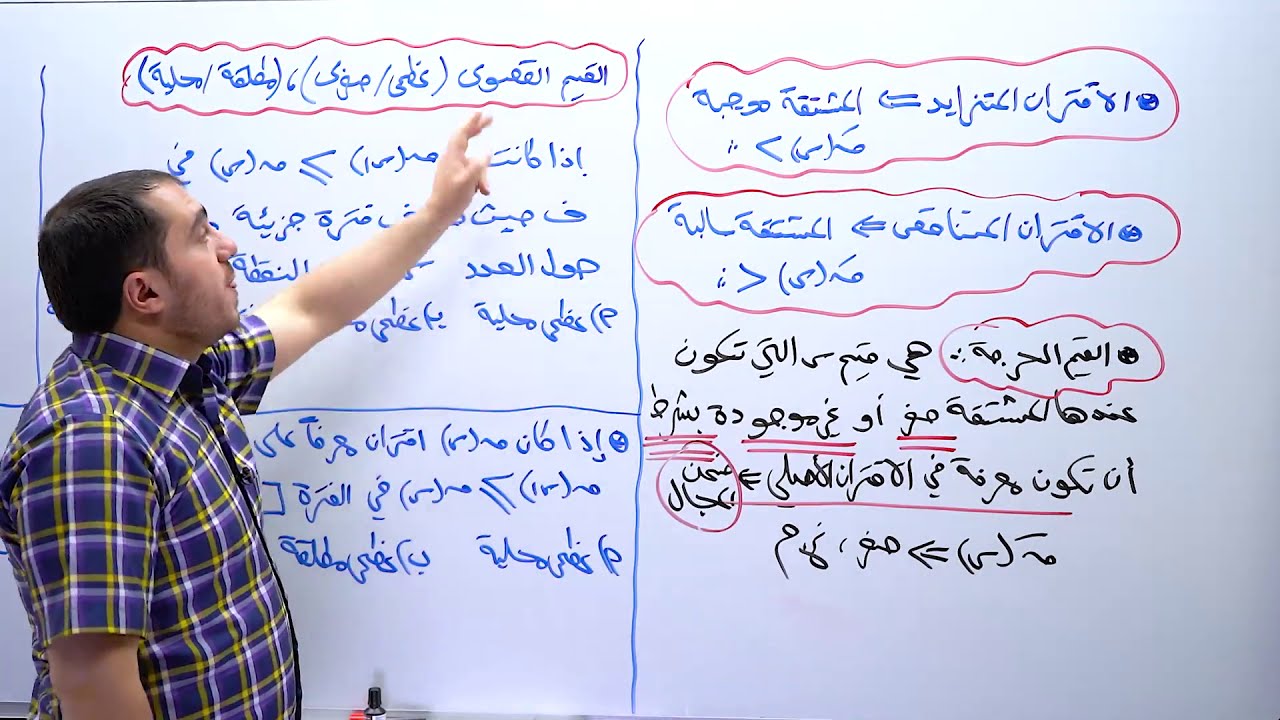 الاقتران المتزايد ⇐ المشتقة موجبة
قَ(س) > ٠
الاقتران المتناقص ⇐ المشتقة سالبة
قَ(س) < ٠
القيم الحرجة: هي قيم س التي تكون
عندها المشتقة صفر أو غير موجودة بشرط
أن تكون معرفة في الاقتران الأصلي ⇐ ضمن المجال
قَ(س) ⇐ صفر، غ.م
القيم القصوى (عظمى/صغرى)، (مطلقة/محلية)
إذا كانت ق(س١) ⩾ ق(س) في
ف حيث ف فترة جزئية
حول العدد النقطة
م) عظمى محلية ب) عظمى
إذا كان ق(س) اقتران معرفاً على
ق(س١) ⩾ ق(س) في الفترة [
م) عظمى محلية ب) عظمى مطلقة